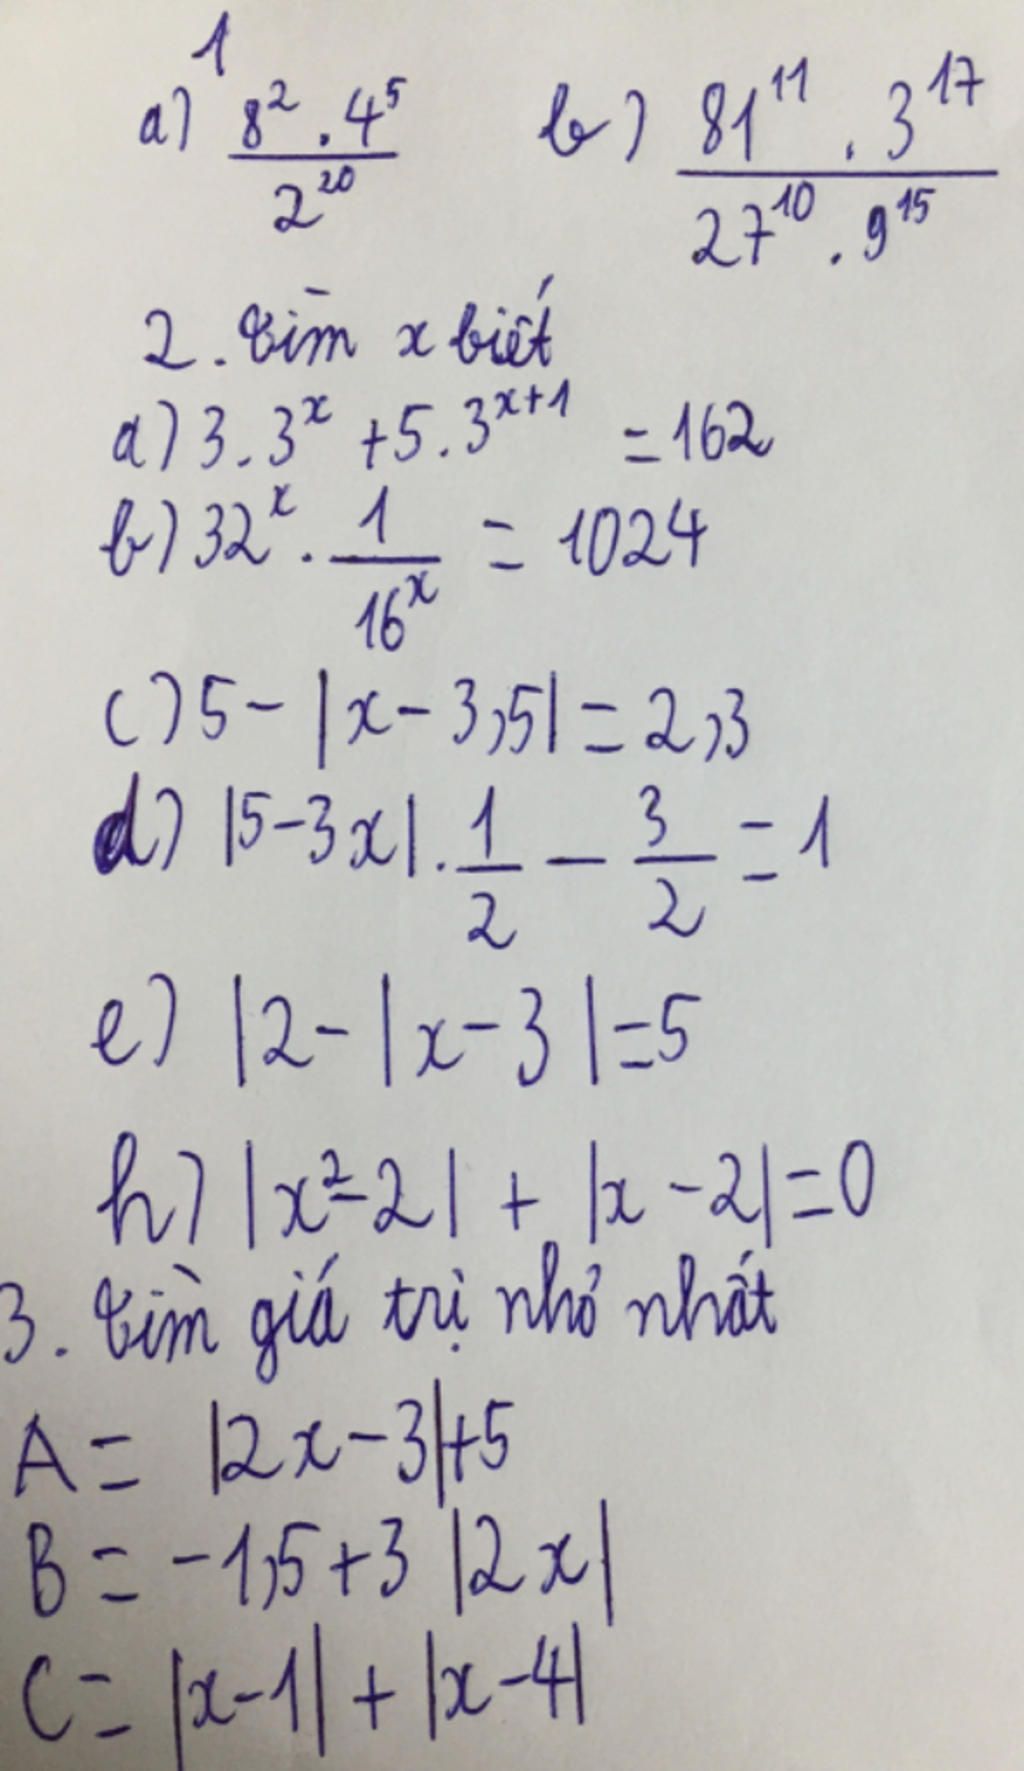 1
a) 8² . 4⁵ / 2²⁰ b) 81¹¹ . 3¹⁷ / 27¹⁰ . 9¹⁵
2. tìm x biết
a) 3 . 3ˣ + 5 . 3ˣ⁺¹ = 162
b) 32ˣ . 1/16ˣ = 1024
c) 5 - |x - 3,5| = 2,3
d) |5 - 3x| . 1/2 - 3/2 = 1
e) |2 - |x - 3| = 5
h) |x² - 2| + |x - 2| = 0
3. tìm giá trị nhỏ nhất
A = |2x - 3| + 5
B = -1,5 + 3 |2x|
C = |x - 1| + |x - 4|